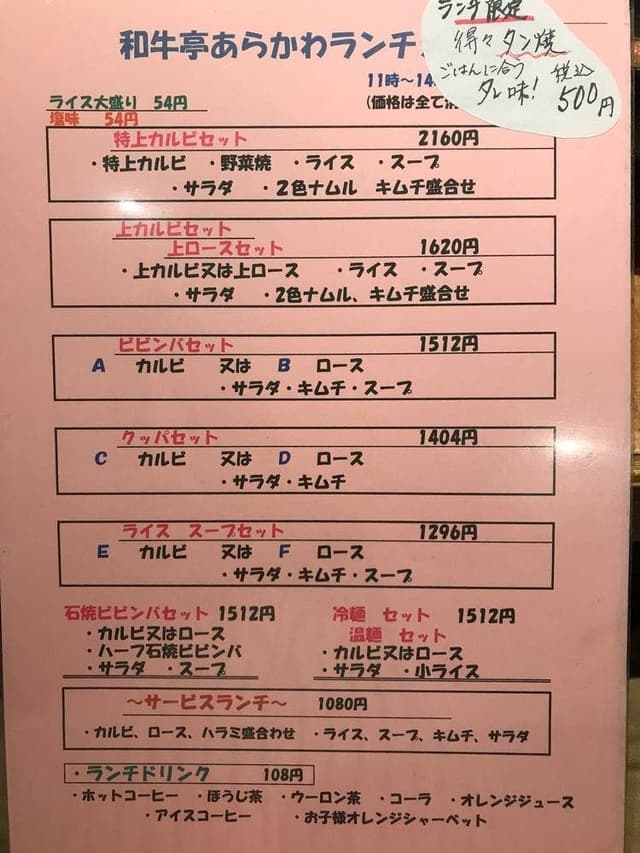 ランチ限定
得々タン焼
ごはんに合う 税込
タレ味! 500円
和牛亭あらかわランチ
11時～14
ライス大盛り 54円
(価格は全て
塩味 54円
特上カルビセット 2160円
・特上カルビ ・野菜焼 ・ライス ・スープ
・サラダ ・2色ナムル キムチ盛合せ
上カルビセット
上ロースセット 1620円
・上カルビ又は上ロース ・ライス ・スープ
・サラダ ・2色ナムル、キムチ盛合せ
ビビンバセット 1512円
A カルビ 又は B ロース
・サラダ・キムチ・スープ
クッパセット 1404円
C カルビ 又は D ロース
・サラダ・キムチ
ライス スープセット 1296円
E カルビ 又は F ロース
・サラダ・キムチ・スープ
石焼ビビンバセット 1512円
・カルビ又はロース
・ハーフ石焼ビビンバ
・サラダ ・スープ
冷麺 セット 1512円
温麺 セット
・カルビ又はロース
・サラダ ・小ライス
～サービスランチ～ 1080円
・カルビ、ロース、ハラミ盛合わせ ・ライス、スープ、キムチ、サラダ
・ランチドリンク 108円
・ホットコーヒー ・ほうじ茶 ・ウーロン茶 ・コーラ ・オレンジジュース
・アイスコーヒー ・お子様オレンジシャーベット